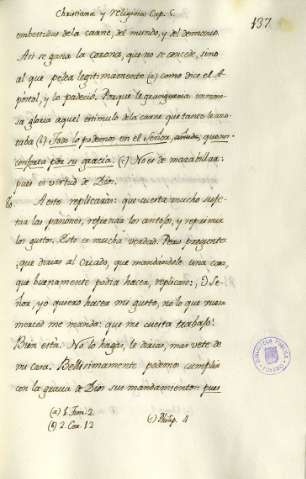 Christiana y Religiosa Cap. C.
137
embestidas de la carne, del mundo, y del demonio.
Asi se gana la corona, que no se concede, sino
al que pelea legitimamente (a) como dice el A-
postol, y lo padeció. Porque le
sa gloria aquel estimulo de la carne que tanto le an-
(b) Todo lo podemos en el Señor, añade, que nos
conforta por su gracia. (c) No es de maravillar:
pues es virtud de Dios.
A esto replicarán: que cuesta mucho suje-
tar las pasiones, refrenar los antojos, y reprimir
los gustos. Esto es mucha verdad. Pero pregunto
¿que dirias al Criado, que mandandole una cosa,
que buenamente podia hacer, replicase; Se-
ñor, yo quiero hacer mi gusto, no lo que vues-
merced me manda: que me cuesta trabajo?
Bien está. No lo hagas, le dirias, mas vete de
mi casa. Bellisimamente podemos cumplir
con la gracia de Dios sus mandamientos: pues
(a) 2. Tim. 2
(b) 2. Cor. 12
(c) Philip. 4